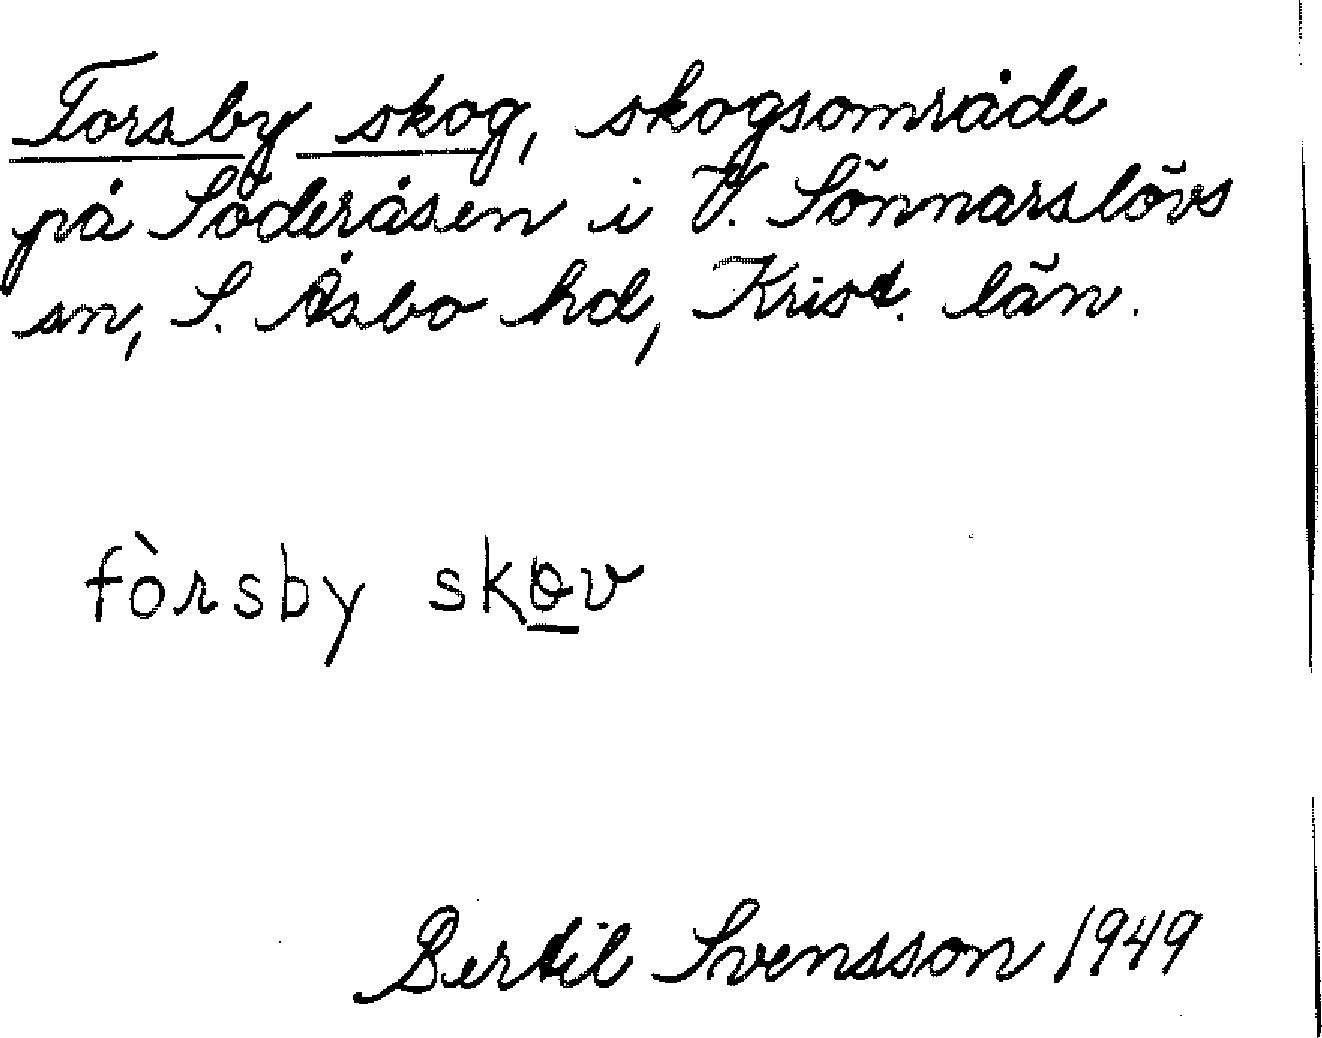 Forsby skog, skogsområde
på Söderåsen i V. Sönnarslövs
sn, S. Åsbo hd, Krist. län.
fòrsby skov
Bertil Svensson 1949